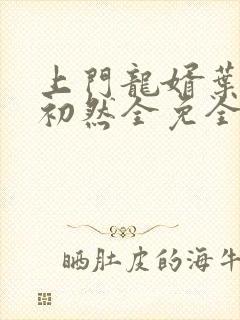 上門龍婿葉
初然全免全
晒肚皮的海牛